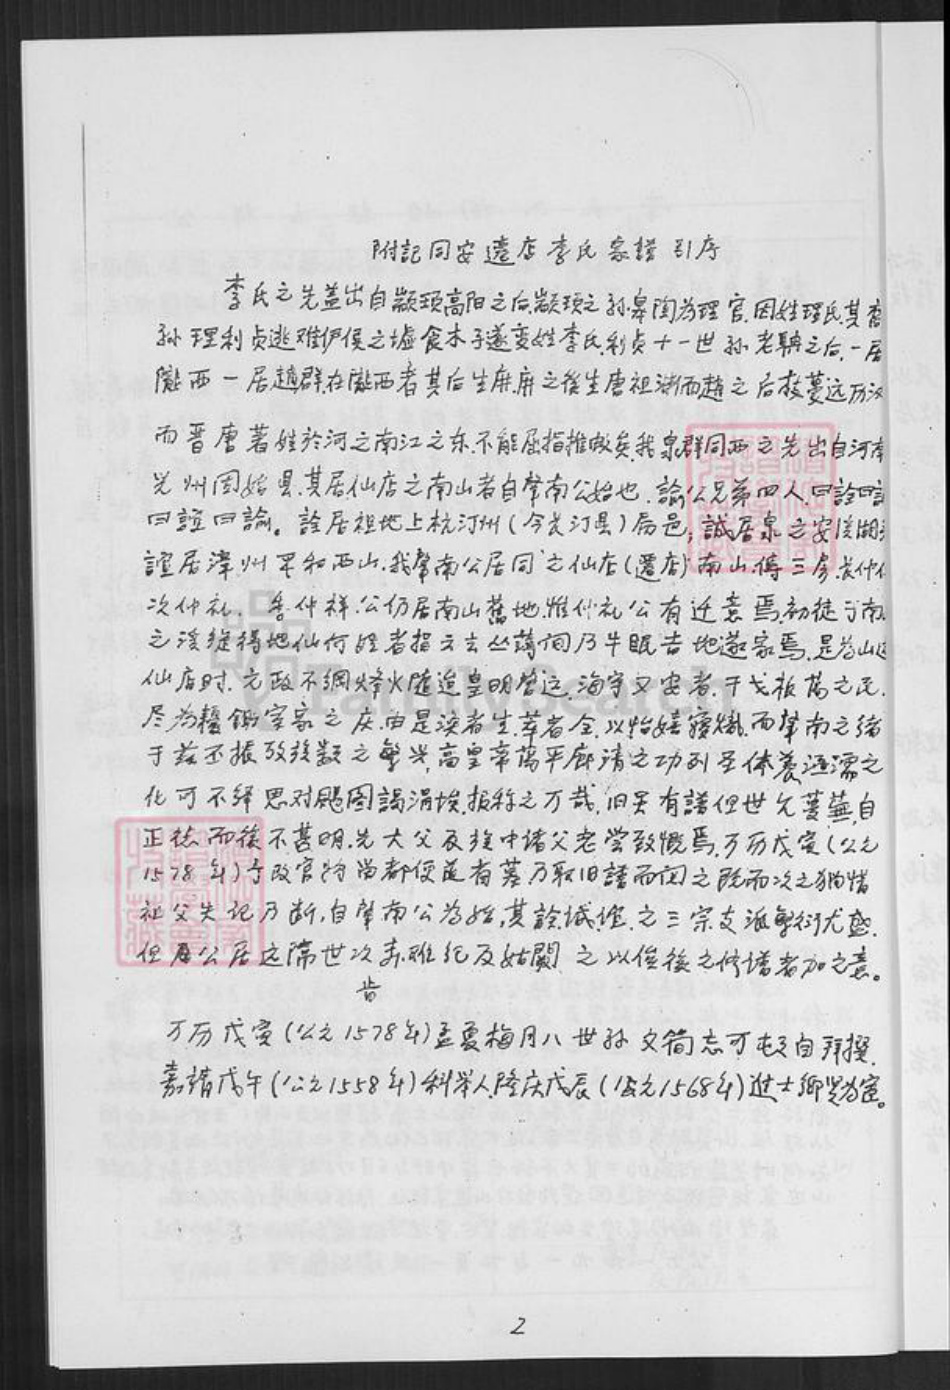 附記同安遷店李氏家譜引序
李氏之先盖出自颛頊高阳之后,颛頊之孙皋陶為理官,因姓理氏,其裔
孙理利贞逃难伊侯之墟食木子遂变姓李氏,利贞十一世孙老聃之后,一居
隴西一居趙群,在隴西者其后生麻,麻之後生唐祖渊而趙之后枝蔓远历汉
而晋唐著姓於河之南江之东,不能屈指推做矣,我泉群同西之先出自河南
光州固始县,其居仙店之南山者自肇南公始也,諭公兄弟四人,曰詮曰誠
曰誼曰諭。詮居祖地上杭汀州(今长汀县)局邑,誠居泉之安溪湖头
誼居漳州平和西山,我肇南公居同之仙店(遷店)南山,傳三房,长仲仕
次仲礼,季仲祥,公仍居南山舊地,惟仲礼公有迁意焉,初徒于南
之溪继得地仙何姓者指立去丛蔼间乃牛眠吉地遂家焉,是為山边
仙店时,元政不綱烽火随追皇明啓运,海宇又安者,干戈板荡之民,
尽為耰鋤室家之庆,由是淡者生,萃者全,以怡嬉寝熾,而肇南之绪
于兹丕振,致後数之繁兴,高皇帝荡平廓清之功列圣体養涵濡之
化可不绎思对颺图謁涓埃,报称之万哉,旧吴有譜但世允蔓蕪,自
正德而後不甚明,先大父及継中诸父老尝致慨焉,万历戊寅(公元
1578年)予改官沔尚都便道省墓乃取旧譜而囚之既而次之猶惜
祖父失记乃断,自肇南公為始,其詮诚谊之三宗支派繁衍尤盛,
但居公居这隔世次亦难纪及姑闕之以俟後之修谱者加之意。
旹
万历戊寅(公元1578年)孟夏梅月八世孙文简志可屯自拜撰
嘉靖戊午(公元1558年)科举人隆庆戊辰(公元1568年)进士鄉贤為宦。
2
FamilySearch